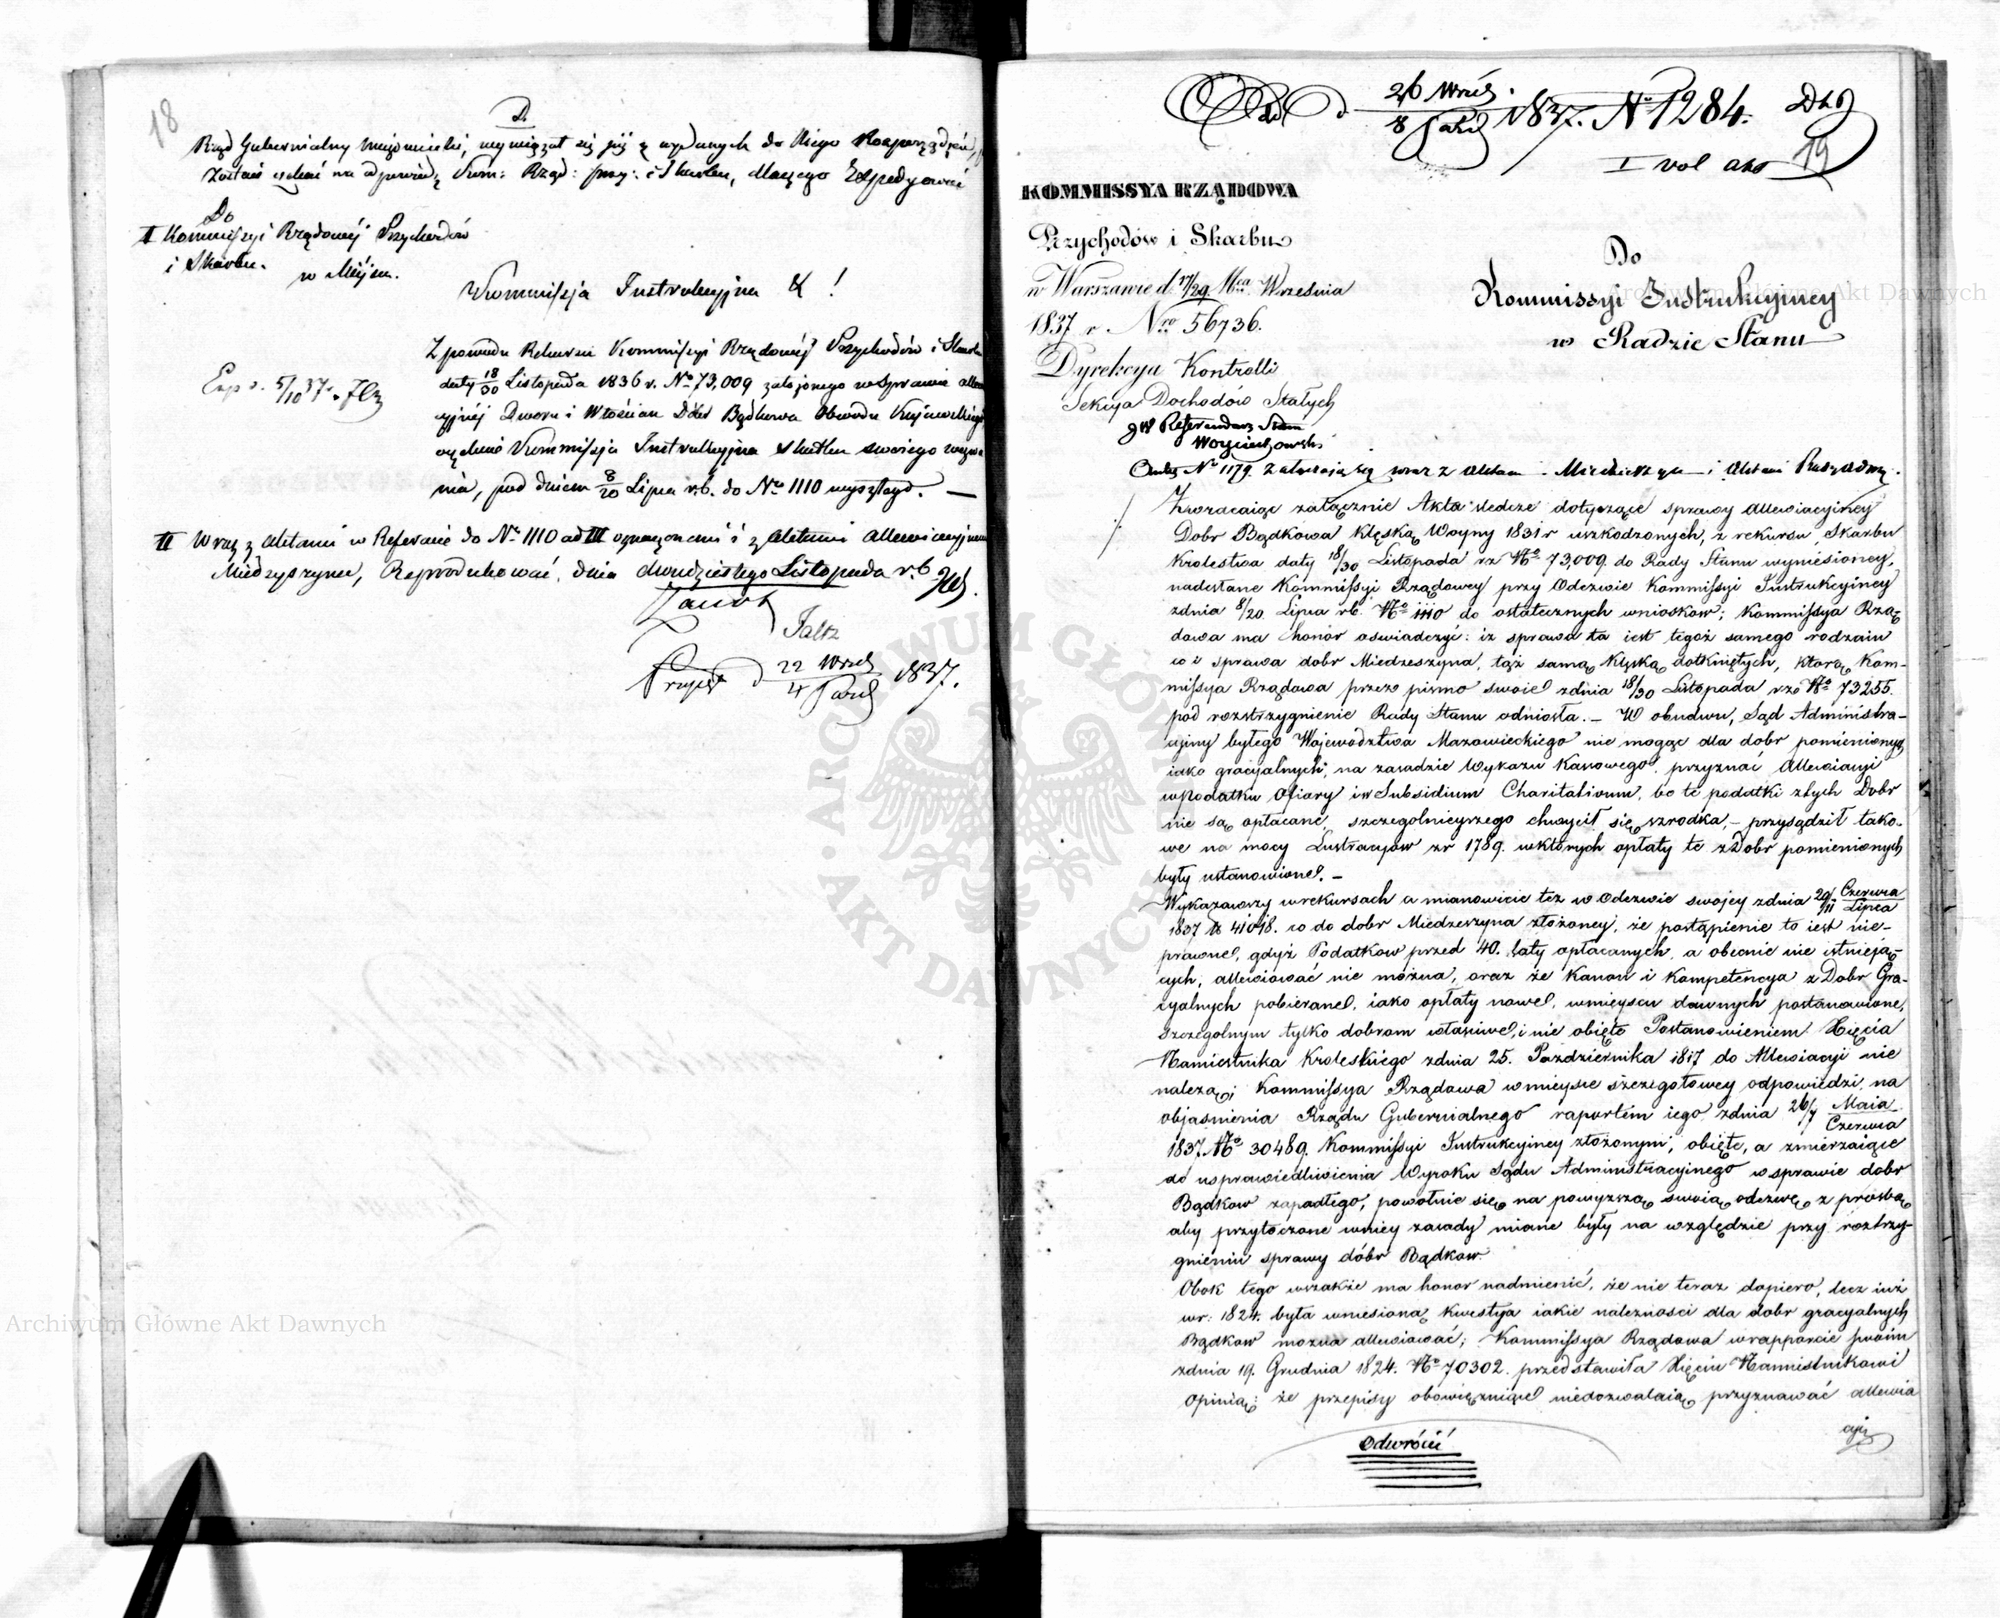 18
2.
Rząd Gubernialny Mazowiecki, wywiązał się już z wydanych do Niego Rozporządzeń,
zostaie czekać na odpowiedź Kom: Rząd: Przy: i Skarbu, dlaczego Expedyować
Do
II Kommissyi Rządowéj Przychodów
i Skarbu.
w Miéjscu.
Kommissja Instrukcyjna &!
Z powodu Rekursu Kommissyi Rządowéj Przychodów i Skarbu
daty 18/30 Listopada 1836 r. No 73,009 założonego w Sprawie allewia
cyjnéj Dworu i Włościan Dóbr Bądkowa Obwodu Kujawskiego,
Kommissja Instrukcyjna skutku swoiego wezwa
nia, pod dniem 8/20 Lipca r.b. do No 1110
Exp d. 5/10 37.
II Wraz z Aktami w Referacie do No 1110 ad III oznaczonemi i z Aktami Allewiacyjnemi
Miedzyszyna, Reprodukować, dnia dwudziestego Listopada r.b.
22 Wrześ
4 Paźd 1837.
Od d 26 Wrześ. / 8 Paźd 1837. No 1284.
I vol akt
19
KOMMISSYA RZĄDOWA
Przychodów i Skarbu
w Warszawie d. 17/29 Mca Września
1837 r. Nro 56736.
Dyrekcya Kontrolli
Sekcya Dochodów Stałych
JW Referendarz Stanu
Woyciechowski
Do
Kommissyi Instrukcyiney
w Radzie Stanu
No 1179. załączają się wraz z Aktami Miedzeszyna i Aktami
Zwracaiąc załącznie Akta śledcze dotyczące sprawy allewiacyiney
Dobr Bądkowa klęską Woyny 1831 r uszkodzonych, z rekursu Skarbu
Krolestwa daty 18/30 Listopada rz No 73,009 do Rady Stanu wyniesioney,
nadesłane Kommissyi Rządowey przy Odezwie Kommissyi Instrukcyiney
z dnia 8/20 Lipca rb. No 1110 do ostatecznych wnioskow; Kommissya Rzą
dowa ma honor oświadczyć: iż sprawa ta iest tegoż samego rodzaiu
co i sprawa dobr Miedzeszyna, tąż samą klęską dotkniętych, ktorą Kom-
missya Rządowa przez pismo swoie z dnia 18/30 Listopada rzo No 73255.
pod rozstrzygnienie Rady Stanu odniosła. – W obudwu, Sąd Administra-
cyiny byłego Wojewodztwa Mazowieckiego nie mogąc dla dobr pomienionych
iako gracyalnych, na zasadzie Wykazu Kassowego przyznać Allewiacyi
w podatku Ofiary i w Subsidium Charitativum, bo te podatki z tych Dobr
nie są opłacane, szczegolnieyszego chwycił się srzodka, – przysądził tako-
we na mocy Lustracyow z r 1789. w ktorych opłaty te z Dobr pomienionych
były ustanowione. –
Wykazawszy w rekursach a mianowicie też w Odezwie swojey z dnia 29/11 Czerwca/Lipca
1837 No 41018. co do dobr Miedzeszyna złożoney, że postąpienie to iest nie-
prawne, gdyż Podatkow przed 40. laty opłacanych, a obecnie nie istnieją-
cych, allewiować nie można, oraz że Kanon i Kompetencya z Dobr Gra-
cyalnych pobierane, iako opłaty nowe, w mieyscu dawnych postanowione,
szczegolnym tylko dobrom właściwe, i nie obięte Postanowieniem Xięcia
Namiestnika Krolewskiego z dnia 25. Października 1817 do Allewiacyi nie
należą; Kommissya Rządowa w mieysce szczegołowey odpowiedzi na
objasnienia Rządu Gubernialnego raportem iego z dnia 26/7 Maia/Czerwca
1837. No 30489. Kommissyi Instrukcyiney złożonym, obięte, a zmierzaiące
do usprawiedliwienia Wyroku Sądu Administracyinego w sprawie dobr
Bądkow zapadłego, powołuie się na powyższą swoią odezwę z prośbą
aby przytoczone w niey zasady miane były na względzie przy roztrzy-
gnieniu sprawy dóbr Bądkow.
Obok tego wszakże ma honor nadmienić, że nie teraz dopiero, lecz iuż
w r: 1824. była wniesiona kwestya iakie należności dla dobr gracyalnych
Bądkow można allewiować; Kommissya Rządowa w rapporcie swoim
z dnia 19. Grudnia 1824. No 70302. przedstawiła Xięciu Namiestnikowi
opinią: że przepisy obowięzuiące niedozwalaią przyznawać allewia
cyi
Odwróć
ARCHIWUM GŁÓWNE AKT DAWNYCH
Archiwum Główne Akt Dawnych
Archiwum Główne Akt Dawnych